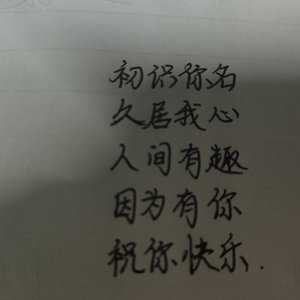 初识你名
久居我心
人间有趣
因为有你
祝你快乐.